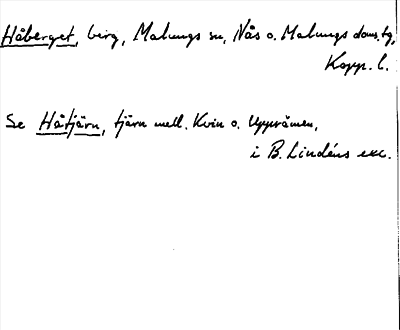 Håberget, berg, Malungs sn, Nås o. Malungs doms.tg,
Kopp. l.
Se Håtjärn, tjärn mell. Kvin o. Uppvåmen,
i B. Lindéns exc.